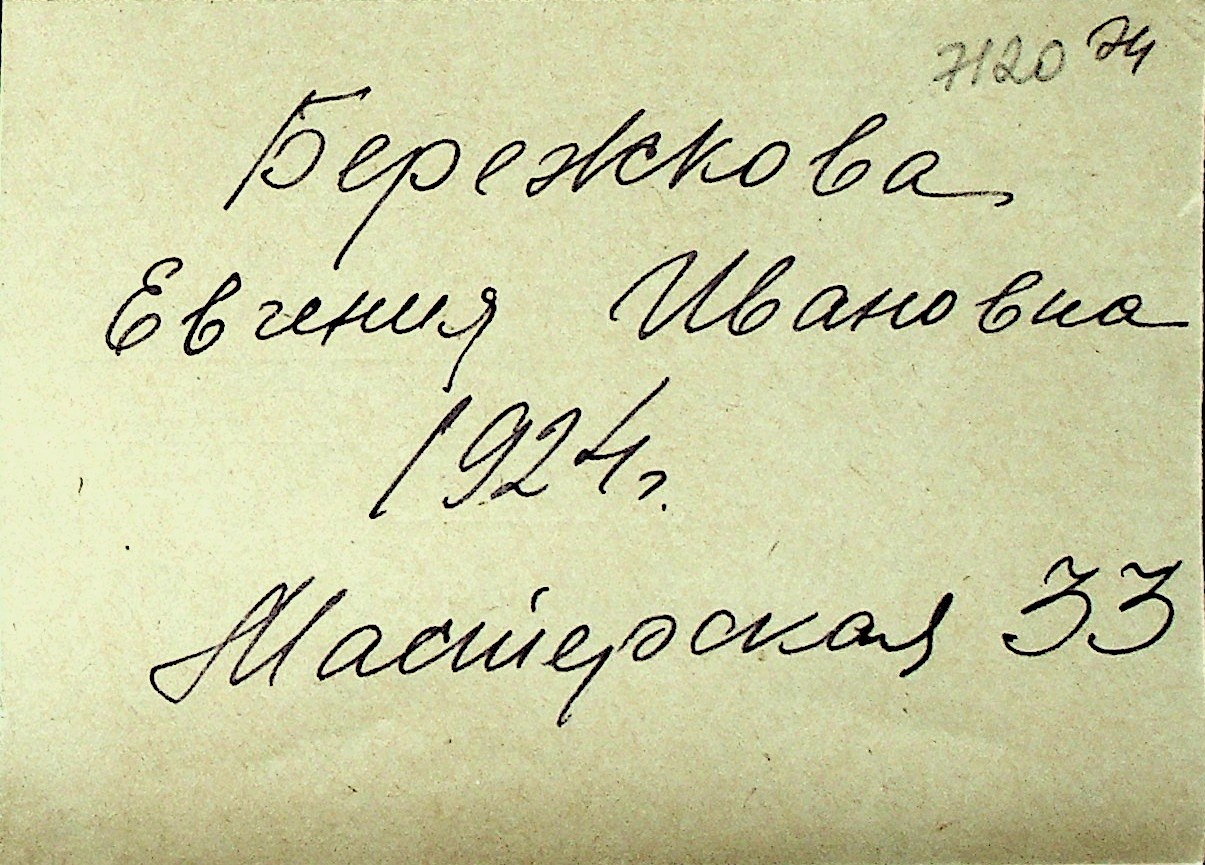 7120 74
Бережкова
Евгения Ивановна
1924 г.
Мастерская 33